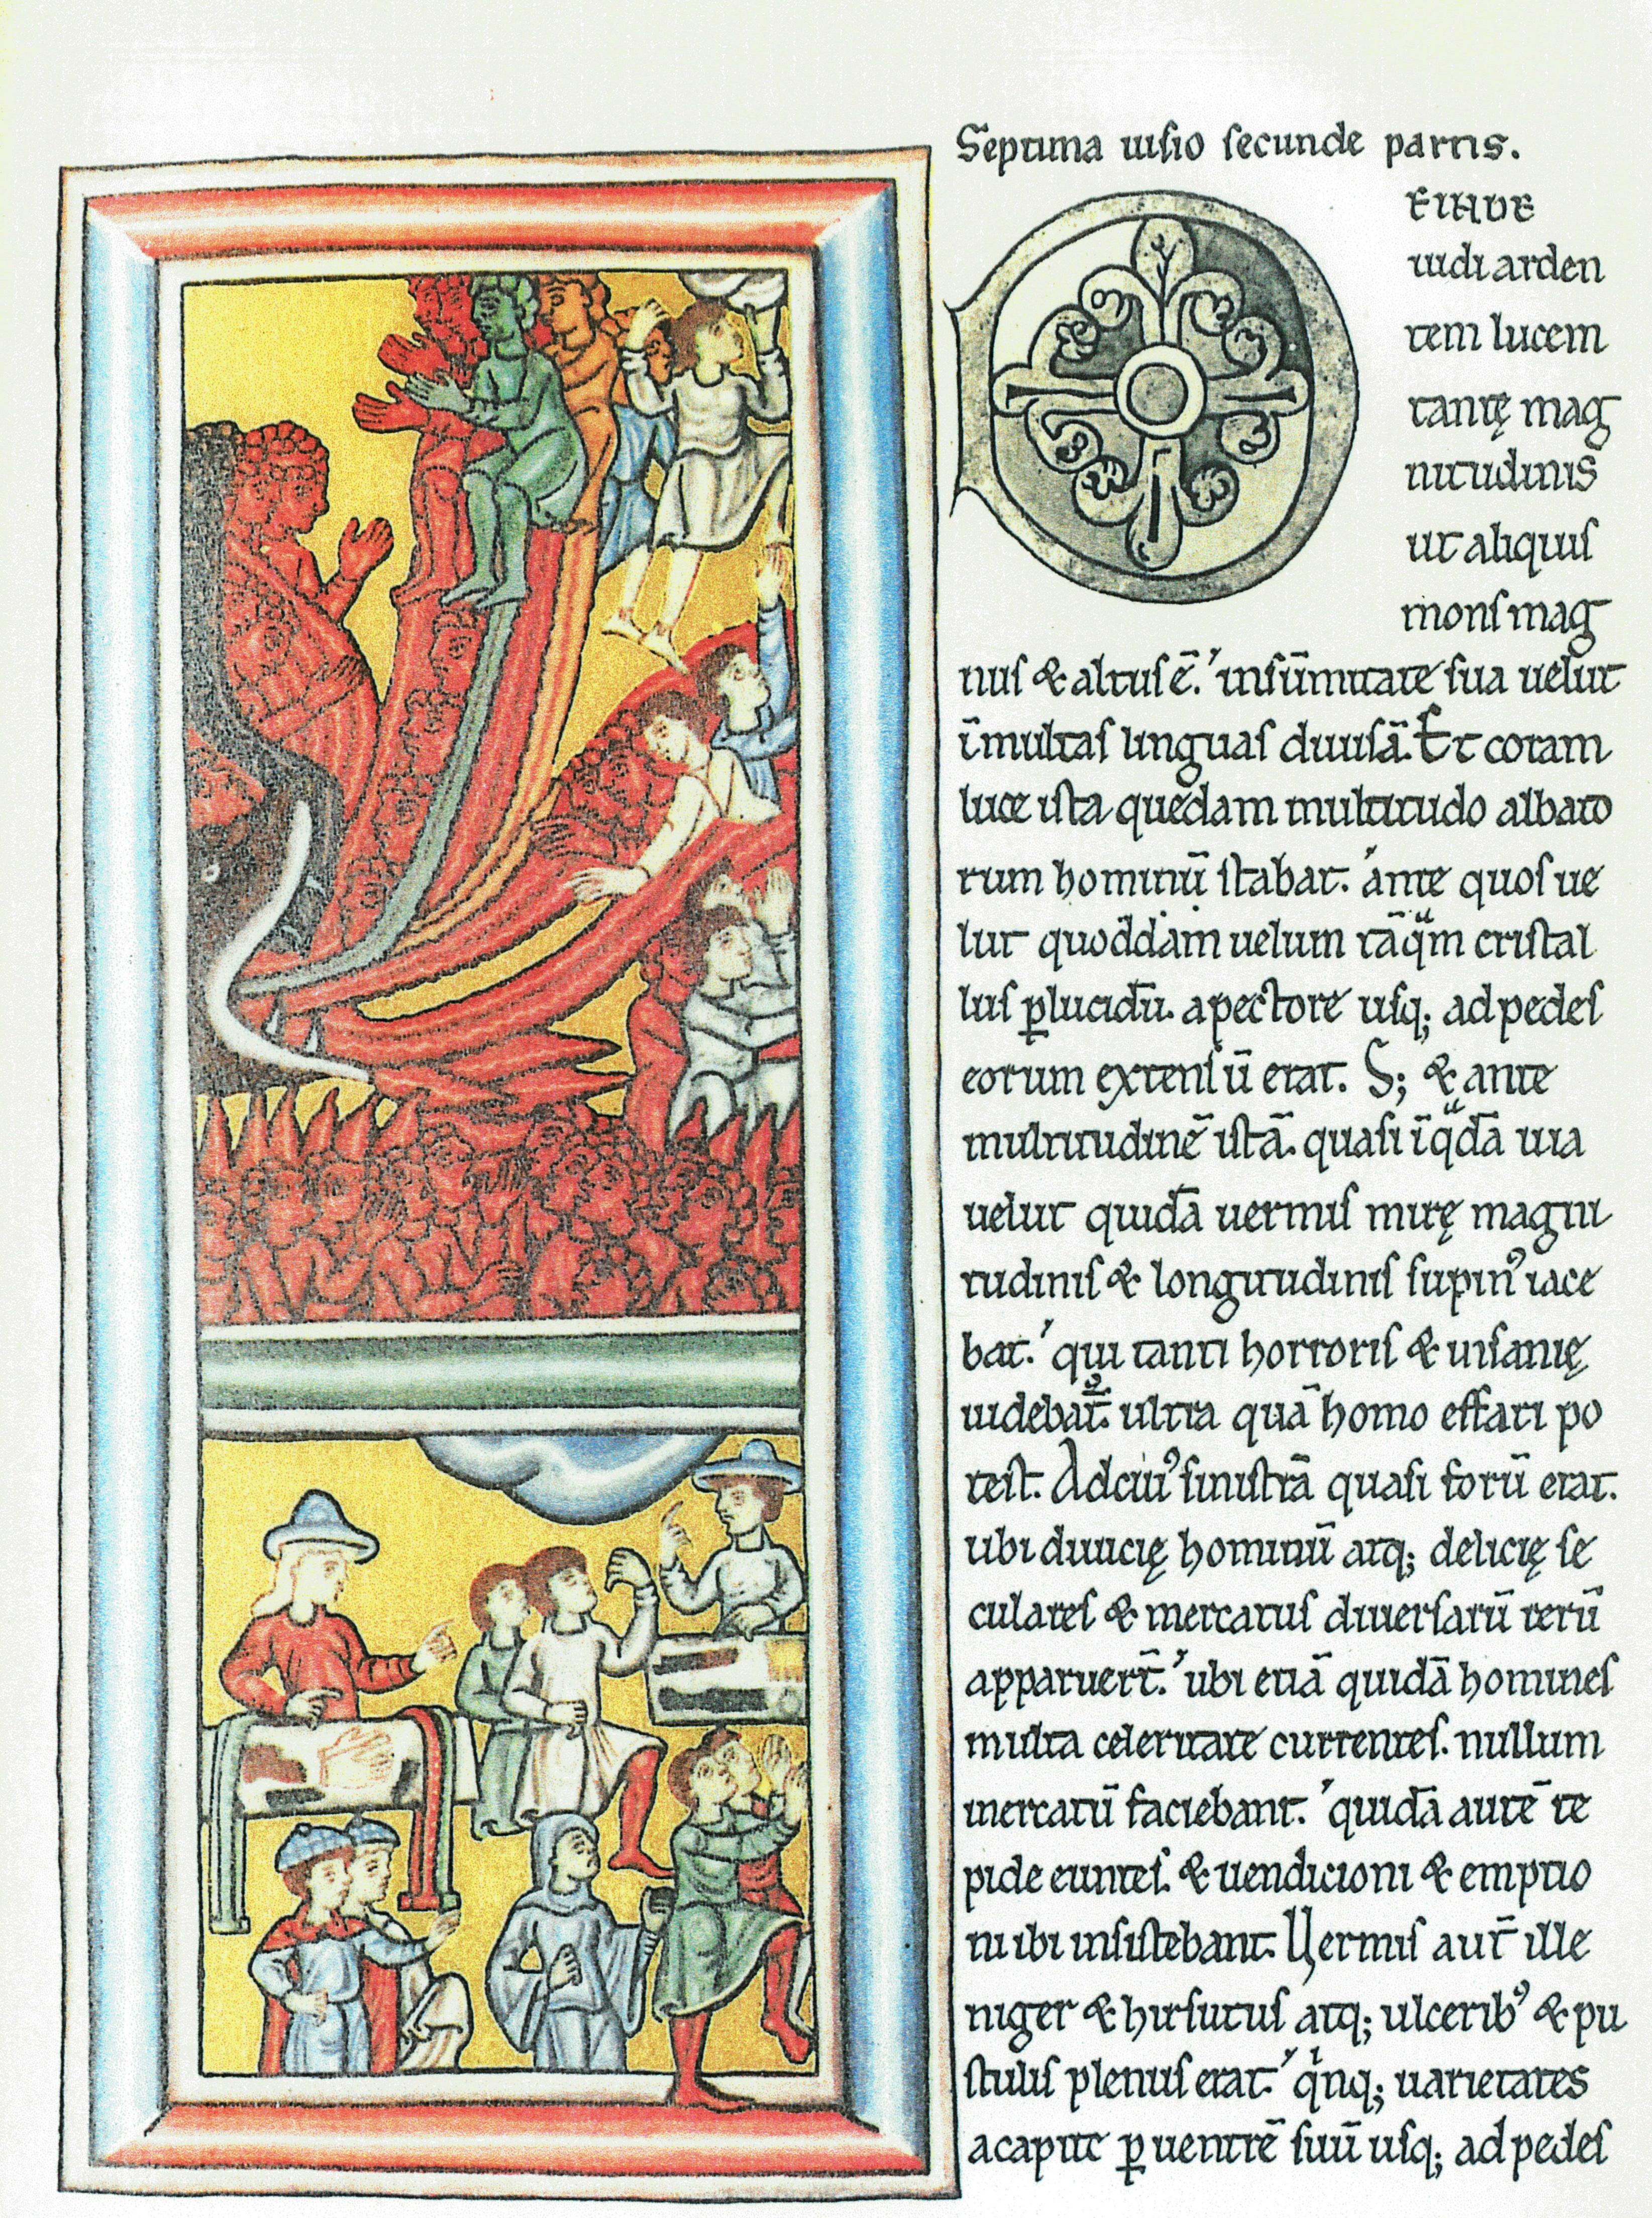 Septima uisio secunde partis.
DEINDE
uidi arden
tem lucem
tantę mag
nitudinis
ut aliquis
mons mag
nus & altus ē. insūmitate sua uelut
īmultas linguas diuisā. Et coram
luce ista quedam multitudo albato
rum hominū stabat. ante quos ue
lut quoddam uelum tāqͣm cristal
lus ꝑlucidū. apectore usq; ad pedes
eorum extensū erat. S; & ante
multitudinē istā. quasi īqͣdā uia
uelut quidā uermis mirę magni
tudinis & longitudinis supinꝰ iace
bat. qui tanti horroris & uisanię
uidebat̄. ultra quā homo effari po
test. Adciuꝰ sinistrā quasi forū erat.
ubi diuicię hominū atq; delicię se
culares & mercatus diuersarū rerū
apparuer̄t. ubi etiā quidā homines
multa celeritate currentes. nullum
mercatū faciebant. quidā autē te
pide euntes. & uendicioni & emptio
ni ibi insistebant. Uermis aut̄ ille
niger & hirsutus atq; ulceribꝰ & pu
stulis plenus erat. qͥnq; uarietates
acapite ꝑ uentrē suū usq; ad pedes